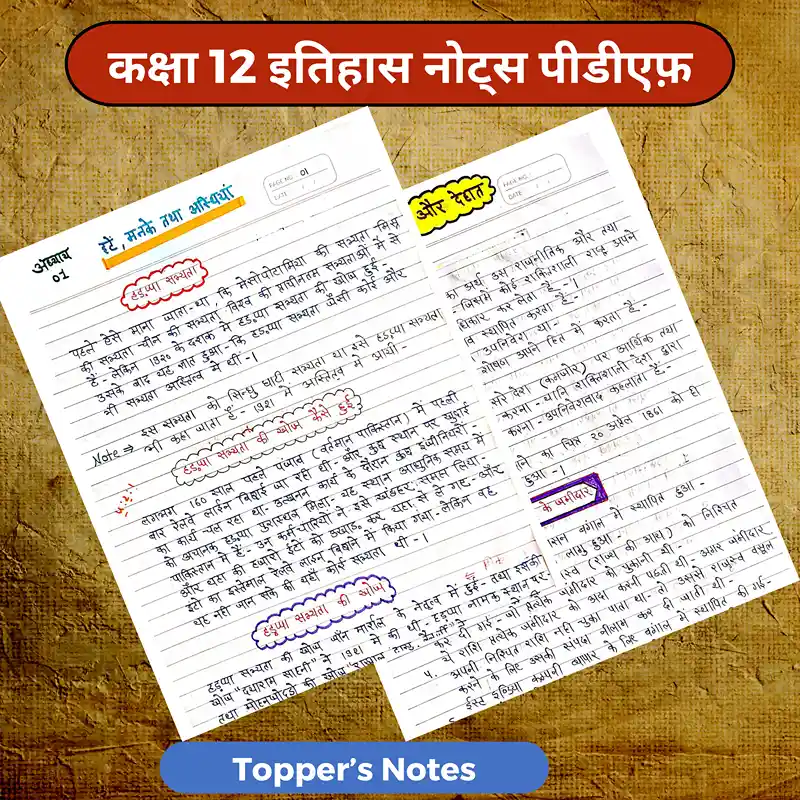 कक्षा 12 इतिहास नोट्स पीडीएफ़
PAGE NO. 01
DATE / /
अध्याय
01
ईटें, मनके तथा अस्थियां
हड़प्पा सभ्यता
पहले ऐसे माना जाता था, कि मेसोपोटामिया की सभ्यता मिस्र
की सभ्यता चीन की सभ्यता विश्व की प्राचीनतम सभ्यताओं में से
है - लेकिन 1920 के दशक में हड़प्पा सभ्यता की खोज हुई -
उसके बाद यह ज्ञात हुआ - कि हड़प्पा सभ्यता जैसी कोई और
भी सभ्यता अस्तित्व में थी -।
इस सभ्यता को सिन्धु घाटी सभ्यता या इसे हड़प्पा सभ्यता
Note ⇒ भी कहा जाता है - 1921 में अस्तित्व में आयी -
हड़प्पा सभ्यता की खोज कैसे हुई
लगभग 160 साल पहले पंजाब (वर्तमान पाकिस्तान) में पहली
बार रेलवे लाईन बिछाई जा रही थी - और कुछ स्थान पर खुदाई
का कार्य चल रहा था - उत्खनन कार्य के दौरान कुछ इंजीनियरों -
को अचानक हड़प्पा पुरास्थल मिला - यह स्थान आधुनिक समय में
पाकिस्तान में है - उन कर्मचारियों ने इसे खंडहर समझ लिया -
और यहा की हजारो ईटों को उखाड़ कर यहा से ले गए - और
ईटों का इस्तेमाल रेलवे लाईन बिछाने में किया गया - लेकिन वह
यह नही जान सके की यहाँ कोई सभ्यता थी -।
हड़प्पा सभ्यता की खोज
हड़प्पा सभ्यता की खोज जॉन मार्शल के नेतृत्व में हुई - तथा इसकी
खोज "दयाराम साहनी" ने 1921 में की थी - हड़प्पा नामक स्थान पर -
तथा मोहनजोदड़ो की खोज
PAGE NO.
DATE / /
और देहात
का अर्थ उस राजनीतिक और तथा
- जिसमें कोई शक्तिशाली राष्ट्र अपने
धिकार कर लेता है -।
व स्थापित करता है -
उपनिवेश या -
शोषण अपने हित में करता है -
सरे देश (कमजोर) पर आर्थिक तथा
करना - यानि शक्तिशाली देश द्वारा
करना - उपनिवेशवाद कहलाता है -
ाने का चित्र 20 अप्रैल 1861 को ही
हुआ -।
के जमींदार
शासन बंगाल में स्थापित हुआ -
लागू हुआ -
स्व (राज्य की आय) को निश्चित
जमींदार को चुकानी थी -
कर दी गई - जो प्रत्येक
ये राशि प्रत्येक जमींदार को अदा करनी पड़ती थी - अगर जमींदार
4. अपनी निश्चित राशि नही चुका पाता था - तो उससे राजस्व वसूल
करने के लिए उसकी संपदा नीलाम कर दी जाती थी -
ईस्ट इण्डिया कम्पनी व्यापार के लिए बंगाल में स्थापित की गई -
Topper's Notes